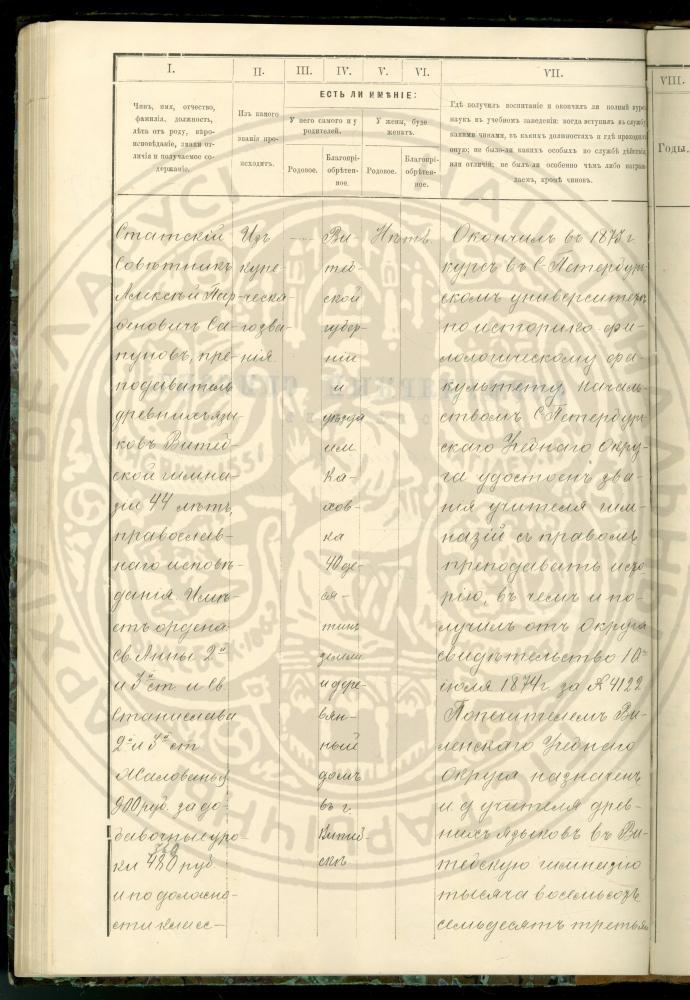 I.
II.
III.
IV.
V.
VI.
VII.
VIII.
ЕСТЬ ЛИ ИМѢНІЕ:
Чинъ, имя, отчество,
фамилія, должность,
лѣта отъ роду, вѣро-
исповѣданіе, знаки от-
личія и получаемое со-
держаніе.
Изъ какого
званія про-
исходитъ.
У него самого и у
родителей.
У жены, буде
женатъ.
Родовое.
Благопрі-
обрѣтен-
ное.
Родовое.
Благопрі-
обрѣтен-
ное.
Гдѣ получилъ воспитаніе и окончилъ ли полный курсъ
наукъ въ учебномъ заведеніи; когда вступилъ въ службу
какими чинами, въ какихъ должностяхъ и гдѣ проходилъ
оную; не было-ли какихъ особыхъ по службѣ дѣяній
или отличій; не былъ-ли особенно чѣмъ либо награ-
ждаемъ, кромѣ чиновъ.
Годы.
Статскій
Совѣтникъ
Алексѣй Пар-
ѳеновичъ Са-
пуновъ, пре-
подаватель
древнихъ язы-
ковъ Витеб-
ской гимна-
зіи 44 лѣтъ,
православ-
наго исповѣ-
данія. Имѣ-
етъ ордена
Св. Анны 2й
и 3й ст. и Св.
Станислава
2й и 3й ст.
Жалованья
900 руб. за до-
бавочные уро-
ки 480 руб.
360
и по должно-
сти класс-
Изъ
купе-
ческа-
го зва-
нія
Ви-
теб-
ской
губер-
ніи
и
уѣзда
им.
Ка-
хов-
ка
40 де-
ся-
тинъ
земли
и дере-
вян-
ный
домъ
въ г.
Витеб-
скѣ
Нѣтъ.
Окончилъ въ 1873 г.
курсъ въ С-Петербург-
скомъ университетѣ
по историко-фи-
лологическому фа-
культету. Началь-
ствомъ С-Петербург-
скаго Учебнаго Окру-
га удостоенъ зва-
нія учителя гим-
назіи съ правомъ
преподавать исто-
рію, въ чемъ и по-
лучилъ отъ Округа
свидѣтельство 10го
іюля 1874 г. за № 4122
Попечителемъ Ви-
ленскаго Учебнаго
Округа назначенъ
и д учителя древ-
нихъ языковъ въ Ви-
тебскую гимназію
тысяча восемьсотъ
семьдесятъ третьяго